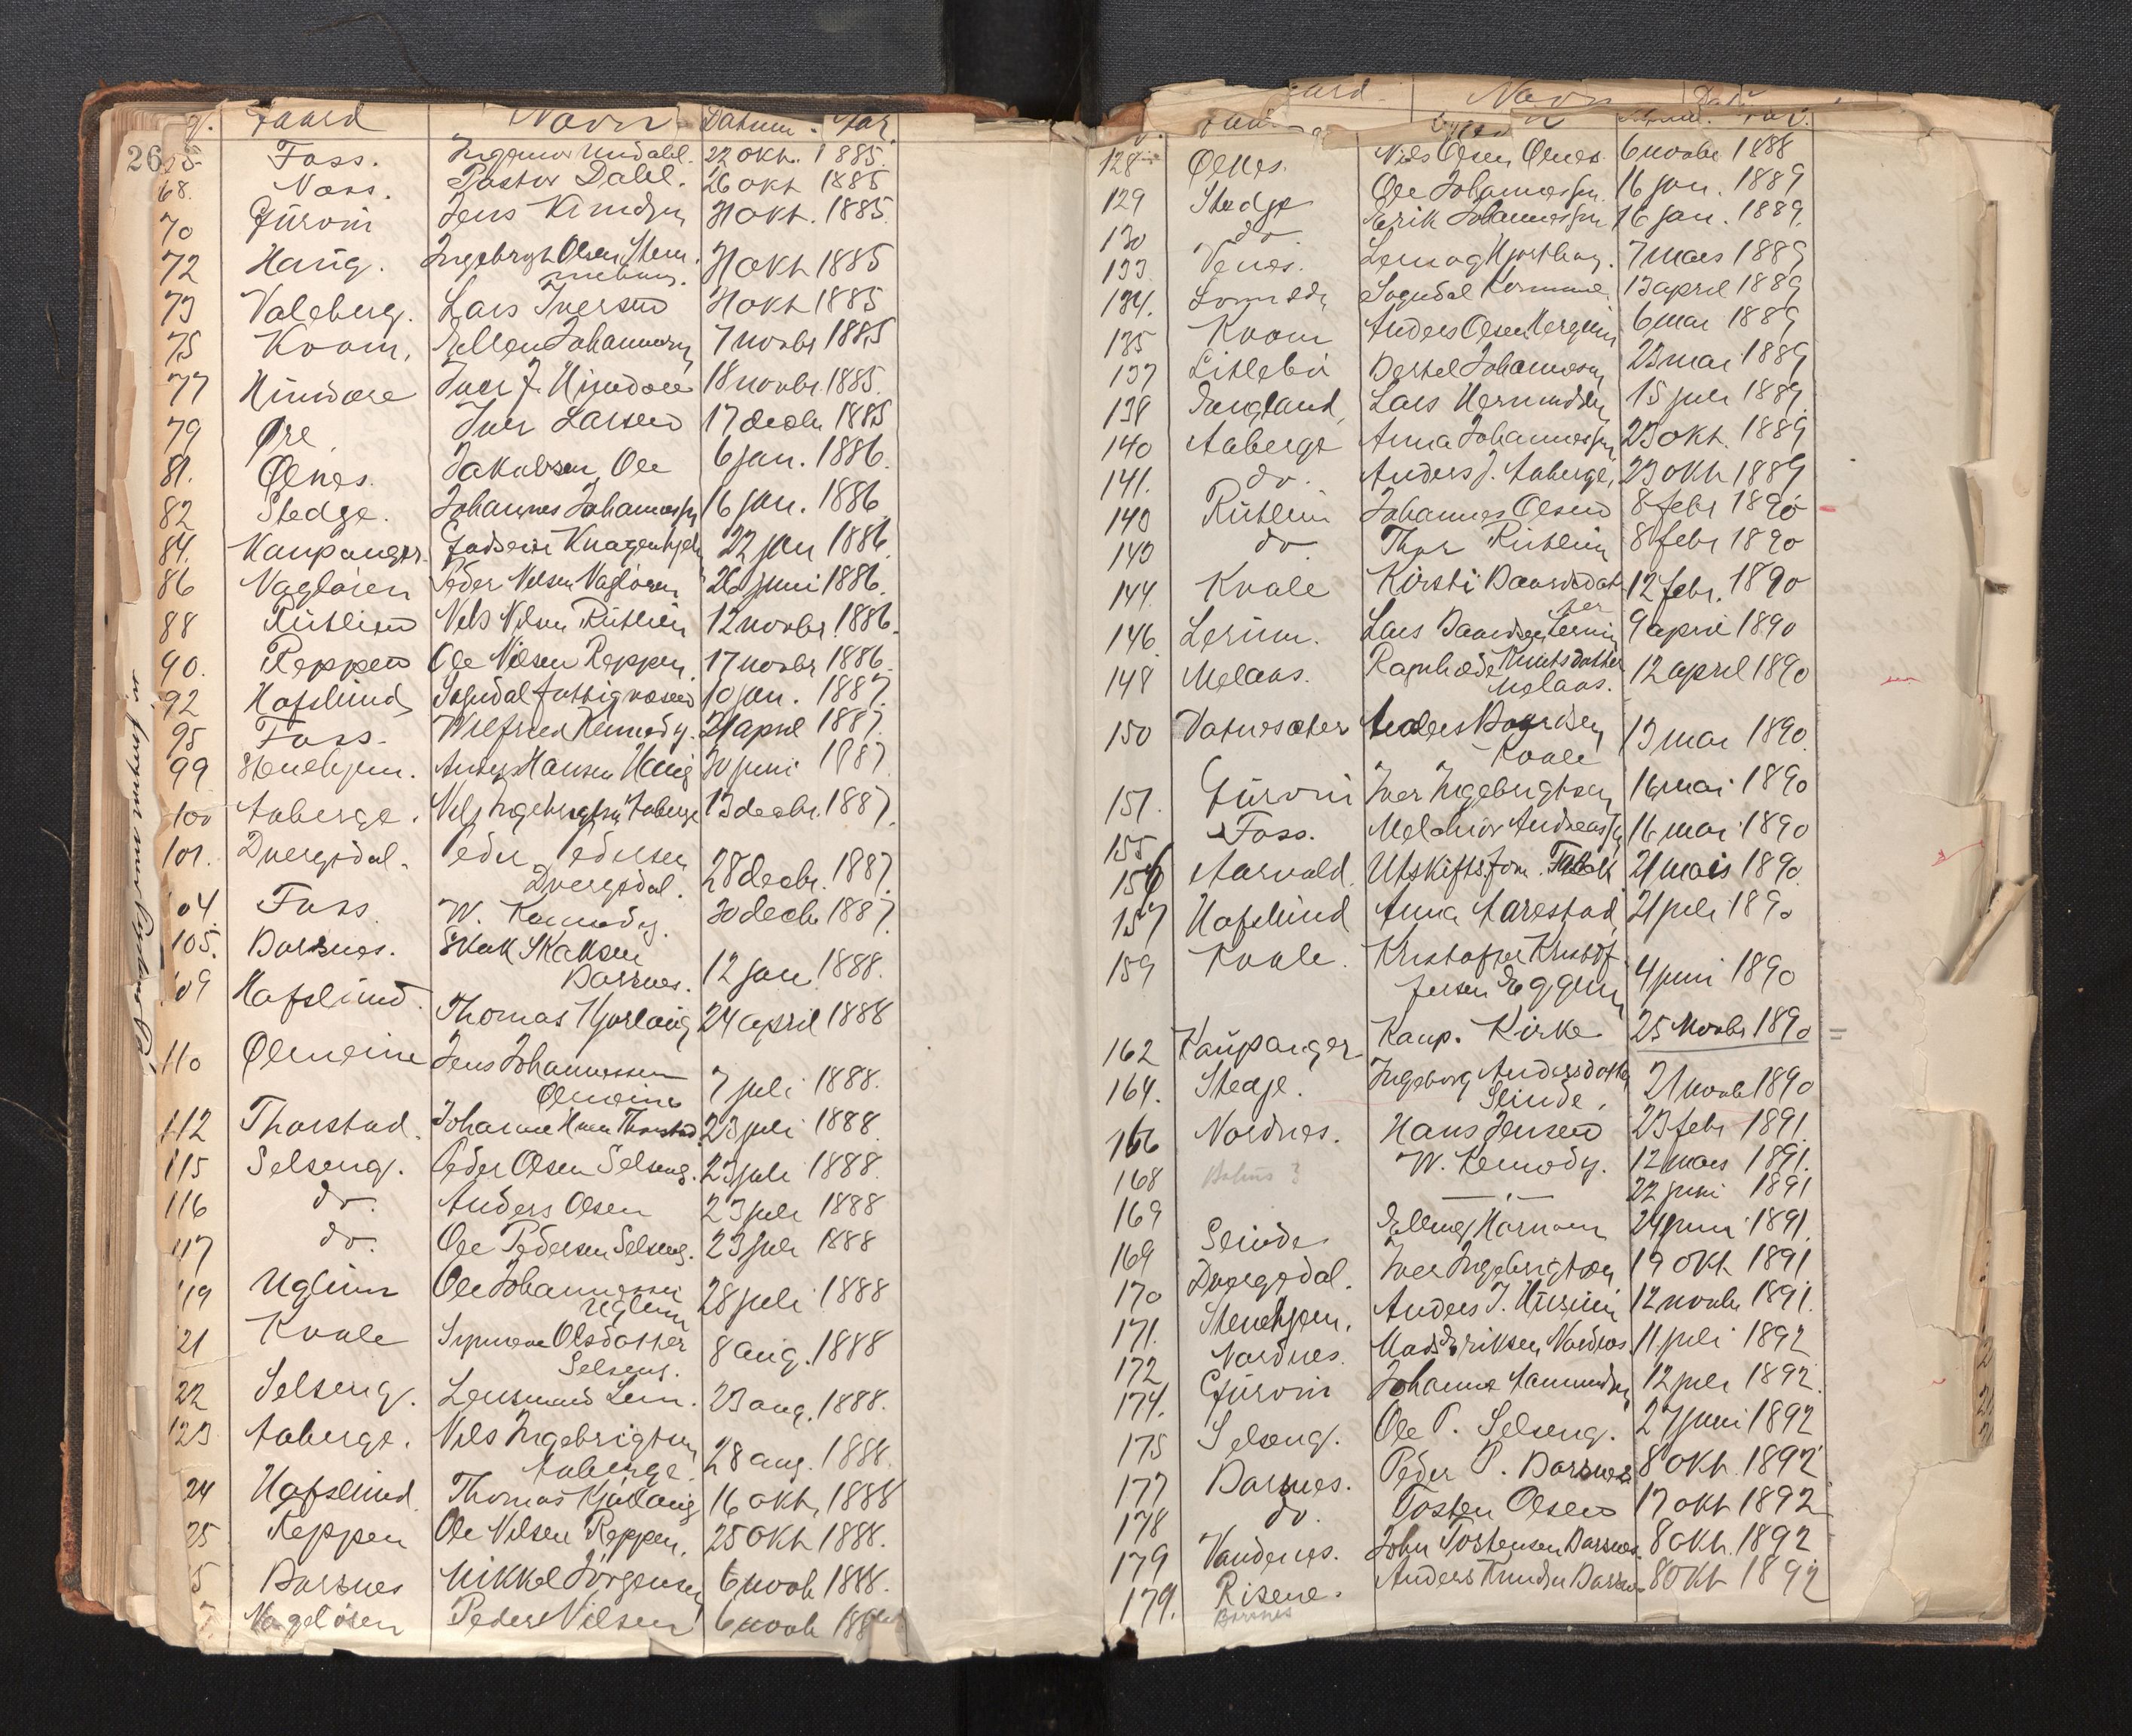 Gaard Navn Datum. Aar.
26
Foss. Ingeniør Undahl. 22 okt. 1885.
68. Næss. Pastor Dahl. 26 okt 1885
70 Gurvin Jens Knudsen 31 okt. 1885.
72 Haug. Ingebrigt Olsen 31 okt 1885
73 Valeberg. Lars Iversen 31 okt 1885
75 Kvam. Johannesen 7 novbr 1885
77 Hundere Iver J. Hundere 18 novbr. 1885.
79 Øre Iver Larsen 17 decbr 1885
81. Ølnes. Jakobsen, Ole 6 jan. 1886.
82 Stedge. Johannes Johannessen 16 jan. 1886
84. Kaupanger. Knagenhjelm 22 jan 1886.
86 Vagløsen Peder Nilsen Vagløsen 26 juni 1886.
88 Rutlien Nils Nilsen Rutlien 12 novbr. 1886.
90. Reppen Ole Nilsen Reppen. 17 novbr 1886.
92 Hafslund Sogndal Fattigvæsen 10 jan. 1887.
95 Foss. Wilfred Kennedy. 21 april 1887.
99 Stenehjem. Anders Hansen Haug 30 juni 1887
100 Aaberge. Nils Ingebrigtsen Aaberge 13 decbr. 1887.
101. Dvergsdal. Peder Pedersen
Dvergsdal. 28 decbr. 1887.
104. Foss. W. Kennedy. 30 decbr 1887.
105. Barsnes. Isak Isaksen
Barsnes. 12 jan. 1888.
109 Hafslund. Thomas Kjørlaug 24 april 1888
110 Ølmeim Jens Johannessen
Ølmeim 7 juli 1888.
112 Thorstad. Johanne Thorstad 23 juli 1888.
115 Selseng. Peder Olsen Selseng. 23 juli 1888.
116 do. Anders Olsen 23 juli 1888
117 do. Ole Pedersen Selseng. 23 juli 1888
119 Uglum Ole Johannessen
Uglum 28 juli 1888
21 Kvale Synneve Olsdatter
Selseng. 8 aug. 1888
22 Selseng. Lensmand Lem. 23 aug. 1888.
123 Aaberge. Nils Ingebrigtsen
Aaberge. 28 aug. 1888.
24 Hafslund. Thomas Kjørlaug 16 okt, 1888
25 Reppen Ole Nilsen Reppen. 25 okt 1888.
5 Barsnes Mikkel Jörgensen 6 novb 1888.
7 Vageløsen Peder Nilsen 6 novb
gaard. Navn Dat.
128 Ølnes. Nils Olsen Ølnes. 6 novbr 1888
129 Stedge Ole Johannessen. 16 jan. 1889
130 do. Erik Johannessen 16 jan. 1889.
133 Venes. 7 mars 1889
134. Sogndal Kommune. 13 april 1889
135 Kvam Anders Olsen 6 mai 1889
137 Litlebø Bertel Johannesen 23 mai 1889
138 Lars Hermundsen 15 juli 1889.
140 Aaberge Anna Johannessen 23 okt. 1889
141. do. Anders J. Aaberge, 23 okt 1889
143 Rutlin Johannes Olsen 8 febr 1890
143 do. Thor Rutlin 8 febr 1890
144. Kvale Kirsti Baardsdat-
ter 12 febr. 1890
146. Lerum. Lars Baardsen Lerum 9 april 1890
148 Melaas. Ragnhilde Knutsdatter
Melaas. 12 april 1890
150 Vatnesæter Anders Baardsen
Kvale 13 mai 1890.
151. Gurvin Iver Ingebrigtsen 16 mai 1890
155 Foss. Melchior Andreassen 16 mai 1890
156 Aarvold. Utskiftsfom. 21 mars 1890.
157 Hafslund Anna Aarestad 21 juli 1890
159 Kvale. Kristofer Kristof-
fersen Eggum 4 juni 1890
162 Kaupanger Kaup. Kirke 25 Novbr 1890 =
164. Stedje. Ingeborg Andersdatter
Slinde. 21 novb 1890
166 Nordnes. Hans Jensen 23 febr 1891.
168 W. Kennedy. 12 mars 1891.
169 — " — 22 juni 1891
169 Slinde 24 juni 1891.
170 Dvergsdal. Iver Ingebrigtsen 19 okt 1891
171. Stenehjem. Anders J. 12 novbr 1891.
172 Nordnes. Mads Eriksen Nordnes. 11 juli 1892
174. Gurvin Johanne Aamundsen 12 juli 1892.
175 Selseng. Ole P. Selseng. 27 juni 1892
177 Barsnes. Peder P. Barsnes 8 okt. 1892
178 do. Tosten Olsen 17 okt 1892
179 Vandenes. John Tostensen Barsnes. 8 okt. 1892
179. Risene. Anders Knudsen Barsnes 8 okt 1892
Barsnes